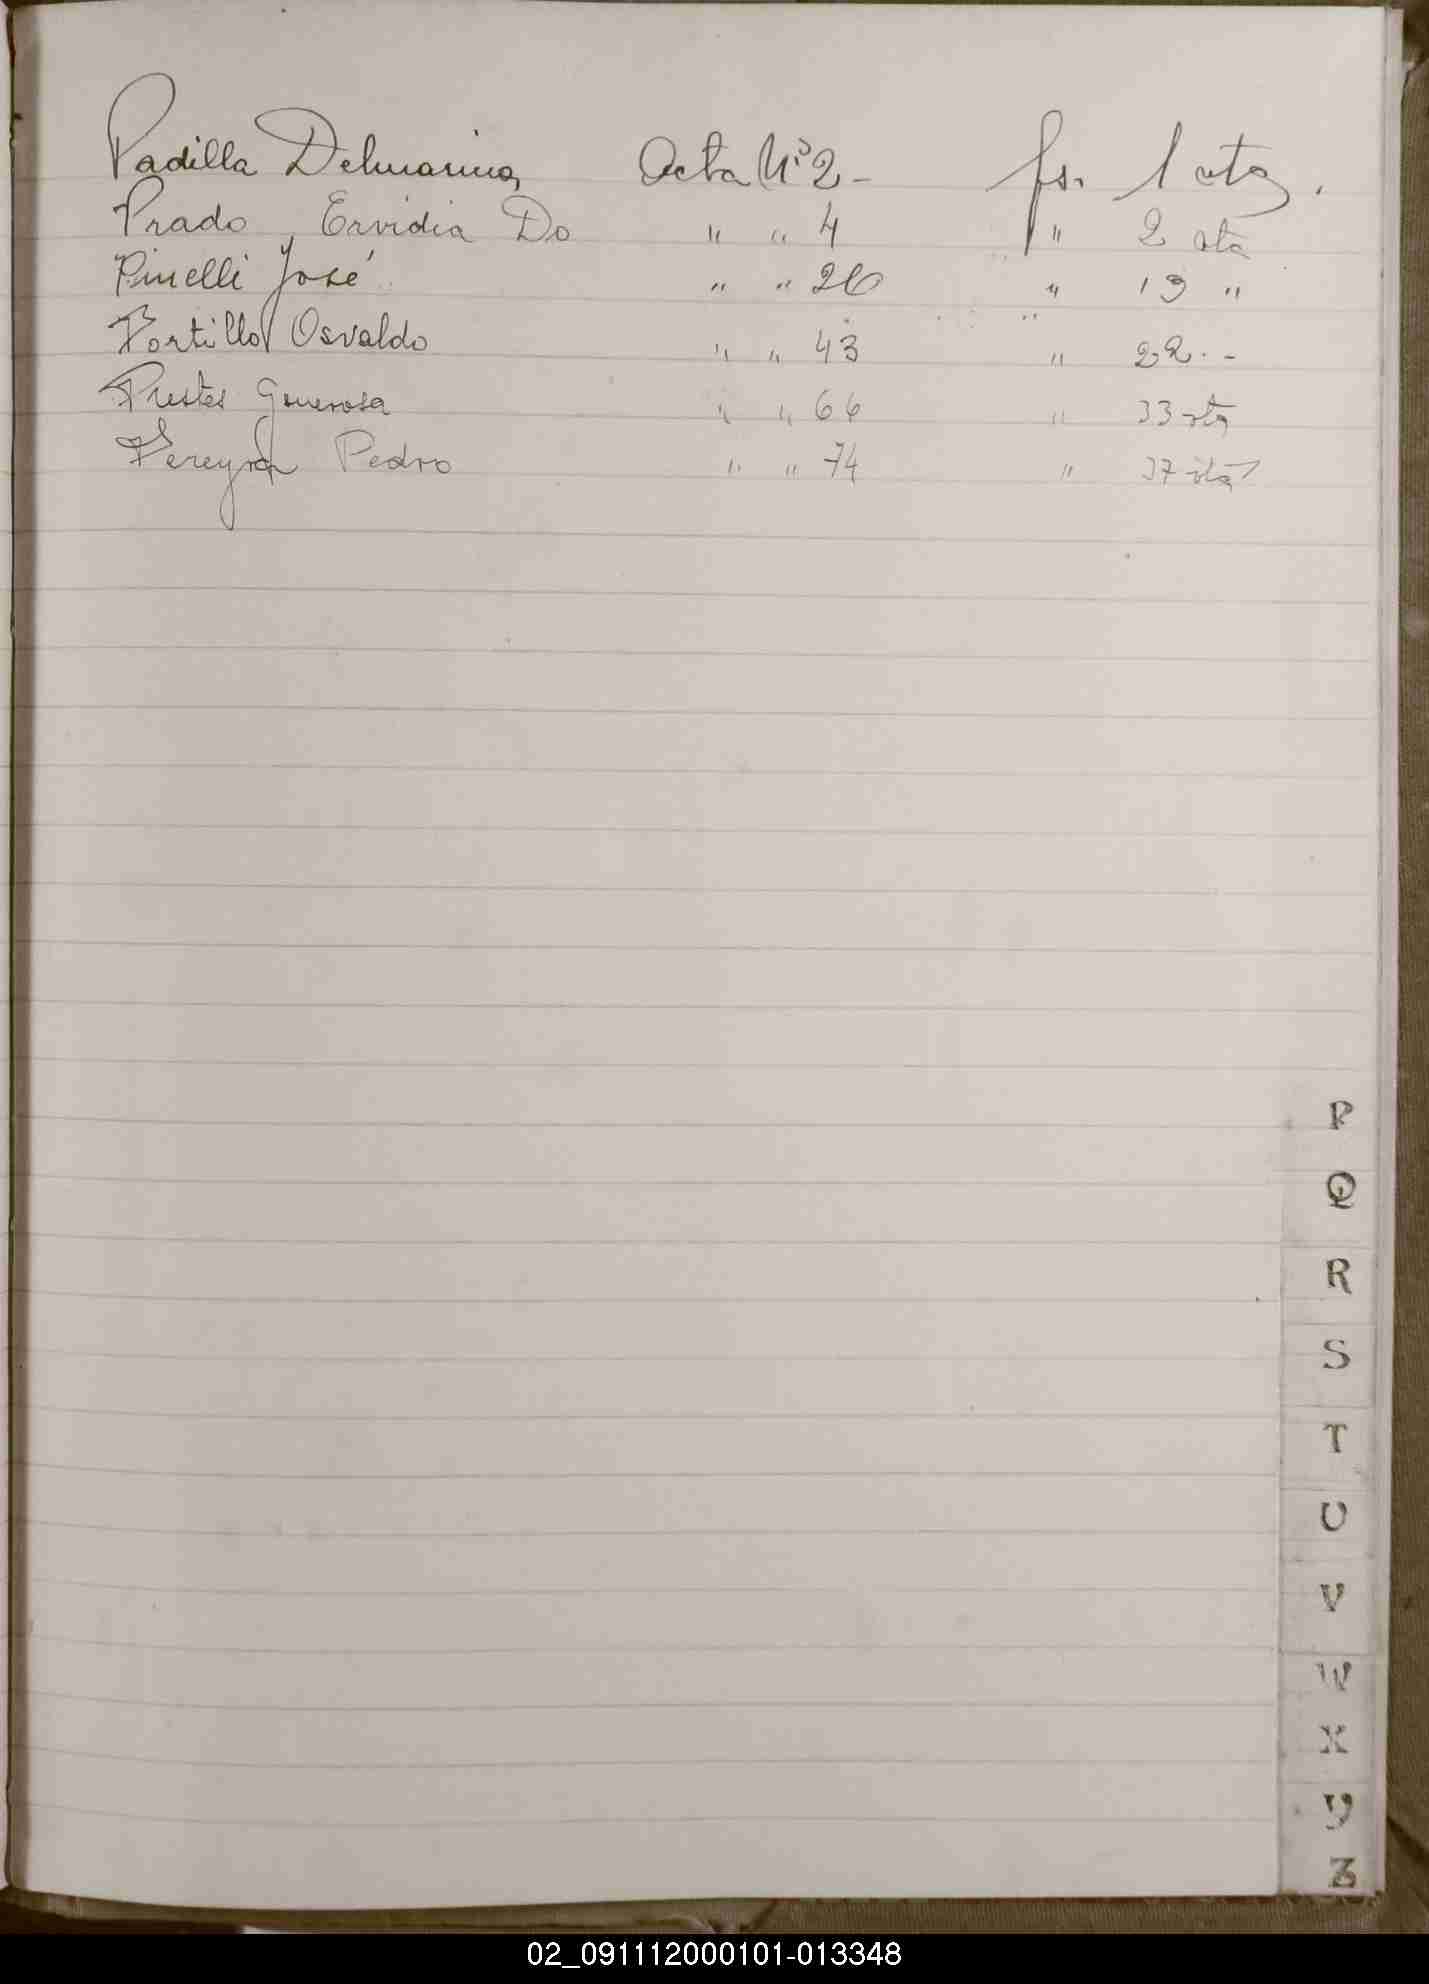 Padilla Delmarina Acta Nº 2- fs. 1 vta.
Prado, Ervidia Do " " 4 " 2 vta
Pinelli José " " 26 " 13 "
Portillo Osvaldo " " 43 " 22 . -
Prestes Generosa " " 64 " 33 vta
Pereyra Pedro " " 74 " 37 vta
P
Q
R
S
T
U
V
W
X
Y
Z
02_091112000101-013348